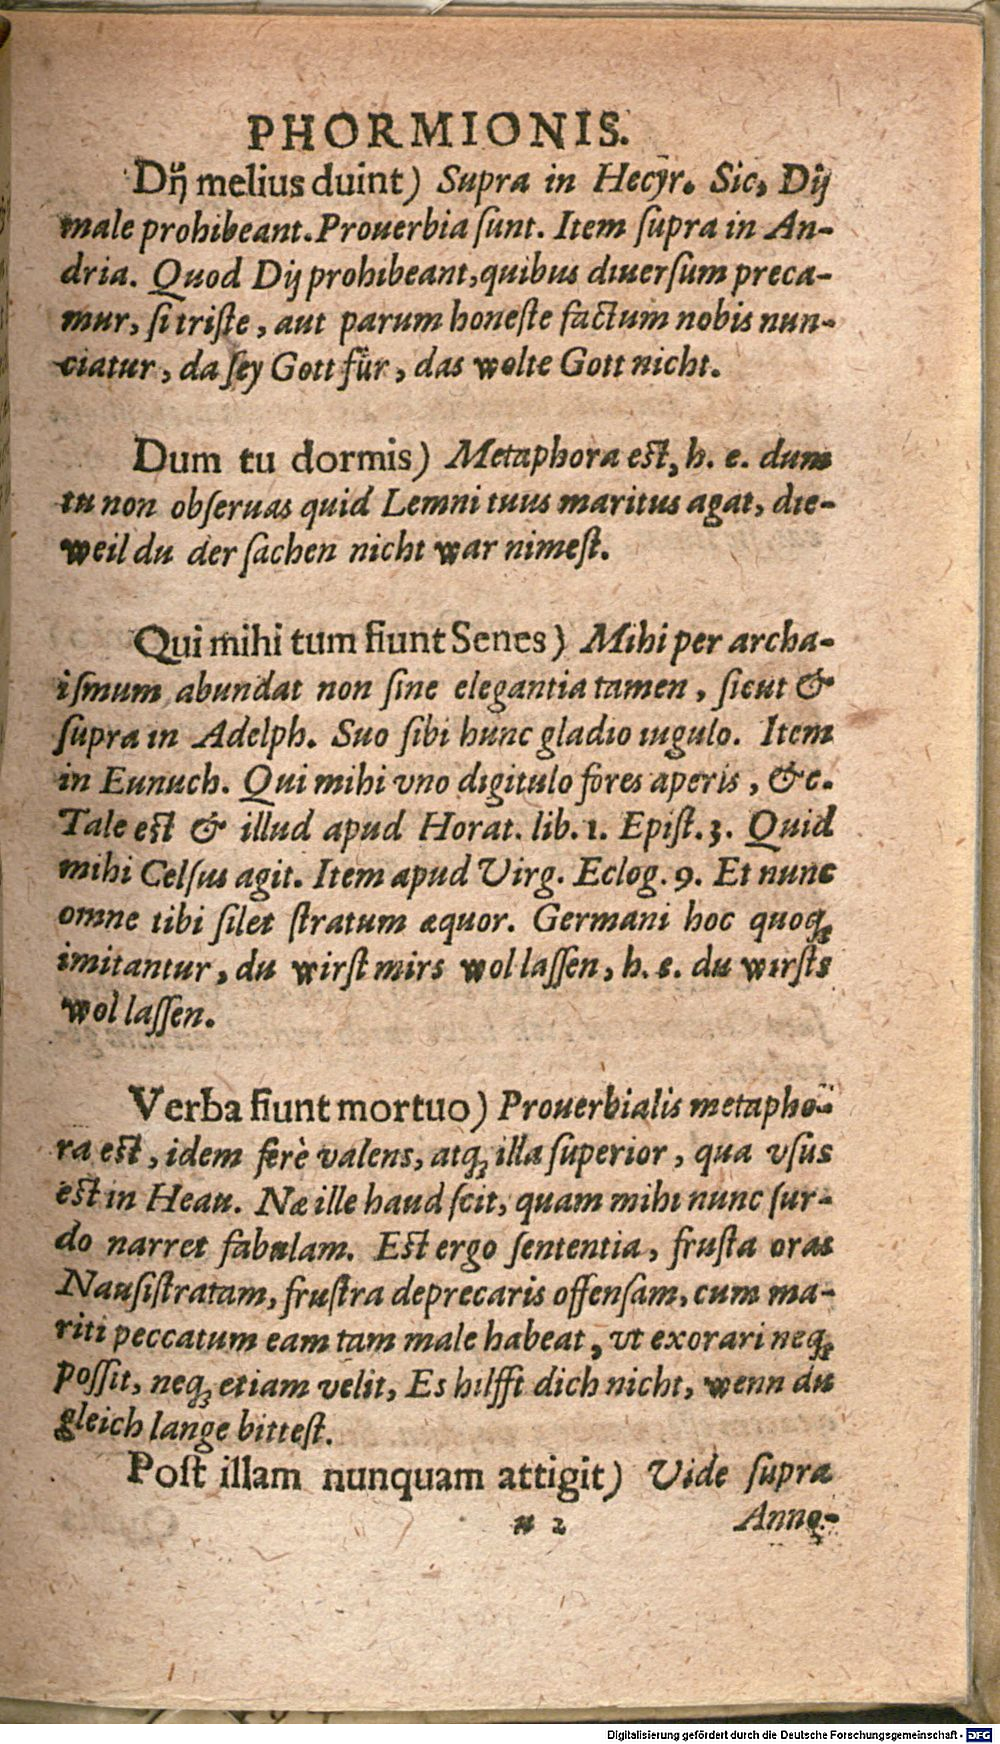 PHORMIONIS.
Dij melius duint) Supra in Hecyr. Sic, Dij
male prohibeant. Prouerbia ſunt. Item ſupra in An-
dria. Quod Dij prohibeant, quibus diuerſum preca-
mur, ſi triſte, aut parum honeſte factum nobis nun-
ciatur, da ſey Gott für, das wolte Gott nicht.
Dum tu dormis) Metaphora eſt, h. e. dum
tu non obſeruas quid Lemni tuus maritus agat, die-
weil du der ſachen nicht war nimeſt.
Qui mihi tum fiunt Senes) Mihi per archa-
iſmum abundat non ſine elegantia tamen, ſicut &
ſupra in Adelph. Suo ſibi hunc gladio iugulo. Item
in Eunuch. Qui mihi vno digitulo fores aperis, &c.
Tale eſt & illud apud Horat. lib. 1. Epiſt. 3. Quid
mihi Celſus agit. Item apud Virg. Eclog. 9. Et nunc
omne tibi ſilet ſtratum æquor. Germani hoc quoq;
imitantur, du wirſt mirs wol laſſen, h. e. du wirſts
wol laſſen.
Verba fiunt mortuo) Prouerbialis metapho-
ra eſt, idem ferè valens, atq; illa ſuperior, qua vſus
eſt in Heau. Næ ille haud ſcit, quam mihi nunc ſur-
do narret fabulam. Eſt ergo ſententia, fruſta oras
Nauſiſtratam, fruſtra deprecaris offenſam, cum ma-
riti peccatum eam tam male habeat, vt exorari neq;
poſſit, neq; etiam velit, Es hilfft dich nicht, wenn du
gleich lange bitteſt.
Poſt illam nunquam attigit) Vide ſupra
n 2 Anno-
Digitalisierung gefördert durch die Deutsche Forschungsgemeinschaft - DFG